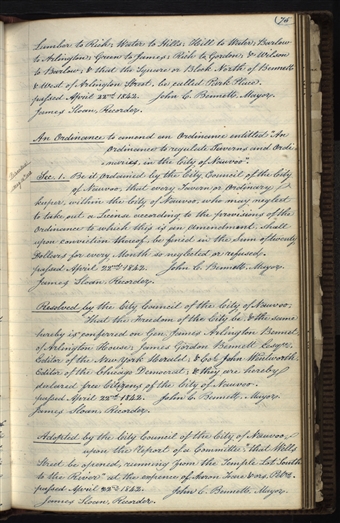 (75
Lumber to Rich; Water to Hills; Hill to Water; Barlow
to Arlington; Green to James; Rich to Gordon; & Wilson
to Barlow; & that the Square or Block North of Bennett
& West of Arlington Street, be called Park Place.
passed April 22nd 1842. John C. Bennett, Mayor.
James Sloan, Recorder.
An Ordinance to amend an Ordinance entitled "An
Ordinance to regulate Taverns and Ordi-
naries, in the City of Nauvoo".
Sec. 1. Be it ordained by the City Council of the City
of Nauvoo, that every Tavern or Ordinary
keeper, within the City of Nauvoo, who may neglect
to take out a License according to the provisions of the
Ordinance to which this is an amendment, shall
upon conviction thereof, be fined in the Sum of twenty
Dollars for every Month so neglected or refused.
passed April 22nd 1842. John C. Bennett, Mayor.
James Sloan, Recorder.
Resolved by the City Council of the City of Nauvoo,
That the Freedom of the City be & the same
hereby is conferred on Gen. James Arlington Bennet
of Arlington House; James Gordon Bennett Esqr.
Editor of the New York Herald, & Col. John Wentworth
Editor of the Chicago Democrat; & they are hereby
declared free Citizens of the City of Nauvoo.
passed April 22nd 1842. John C. Bennett, Mayor.
James Sloan, Recorder.
Adopted by the City Council of the City of Nauvoo,
upon the Report of a Committee, that Wells
Street be opened, running from the Temple Lot South
to the River at the expence of Aaron
passed April 22nd 1842. John C. Bennett, Mayor.
James Sloan, Recorder.